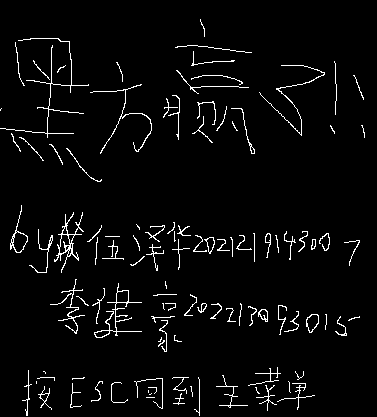 黑方赢了!!
by 伍泽华2021219143007
李健豪202213093015
按ESC回到主菜单